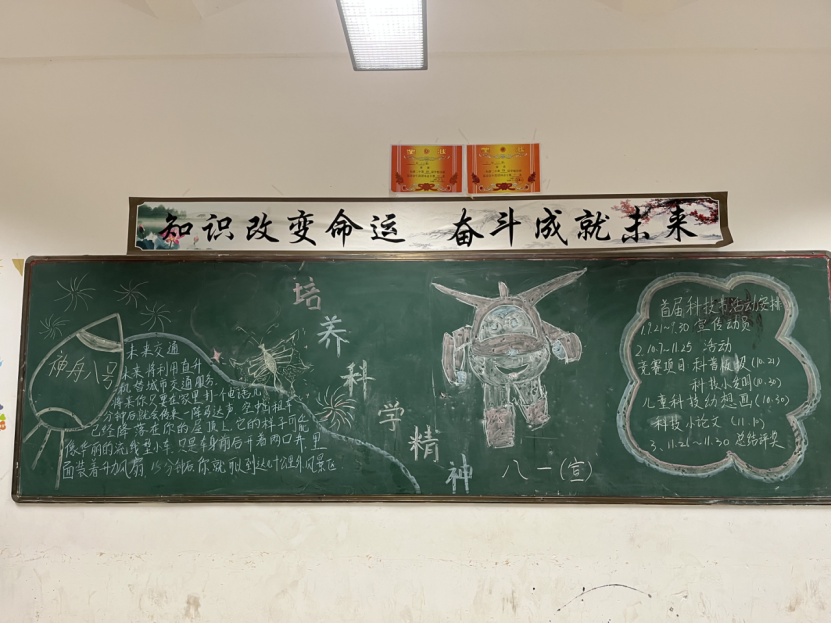 奖状
奖状
知识改变命运 奋斗成就未来
培养科学精神
神舟八号
未来交通
未来将利用直升
机替城市交通服务.
你只要在家里打个电话,几
分钟后就会传来一阵马达声,空中出租车
已经降落在你的屋顶上.它的样子可能
像年前的流线型小车,只是车身前后开着两口井,里
面装着升力风扇,15分钟后你就可
八一(宣)
首届科技节活动安排
1.9.21~9.30 宣传动员
2.10.9~11.25 活动
竞赛项目:科普板报(10.21)
科技小发明(10.30)
儿童科技幻想画(10.30)
科技小论文(11.10)
3、11.21~11.30 总结评奖